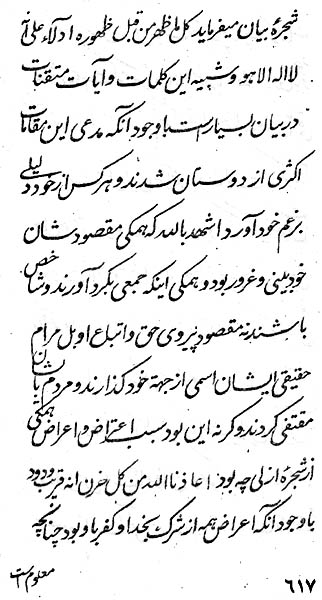 شجرهٔ بیان میفرماید کل ما ظهر من قبل ظهوره ادلاء علی ان
لا اله الا هو و شبیه این کلمات و آیات متقنات
در بیان بسیار است با وجود آنکه مدعی این مقامات
اکثری از دوستان شدند و هر کس از خود دلیلی
بزعم خود آورد اشهد بالله که همگی مقصود شان
خودبینی و غرور بود و همگی اینکه جمعی بگرد آورند و شاخص
باشند نه مقصود پیروی حق و اتباع او بل مرام
حقیقی ایشان اسمی از جهة خود گذارند و مردم باشان
مقتفی کردند و کر نه این بود سبب اعتراض و اعراض همگی
از شجرهٔ ازلی چه بود اعاذنا الله من کل حزن انه قریب ودود
با وجود آنکه اعراض همه از شرک بخدا و کفر باو بود چنانچه
معلوم است
۶۱۷